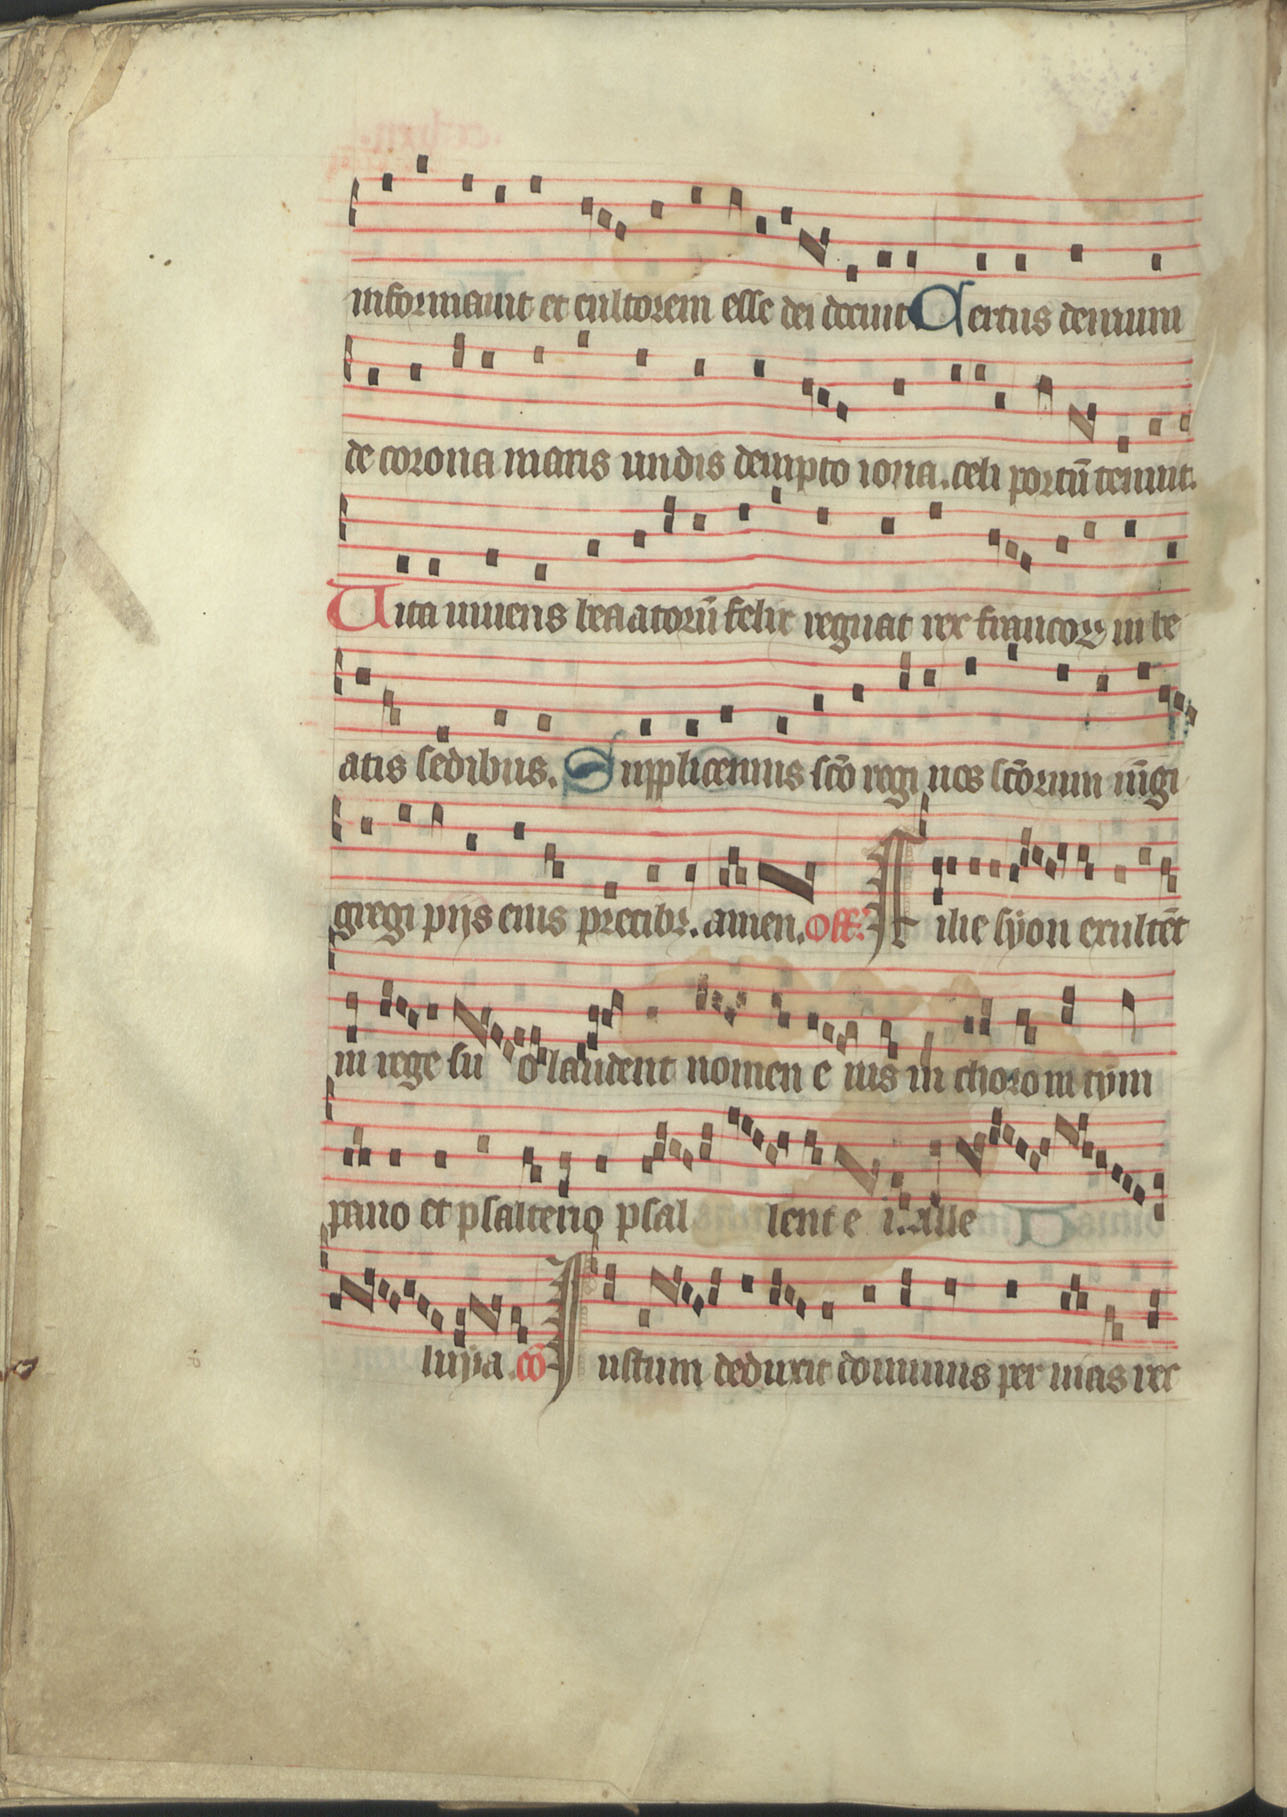 informauit et cultorem esse dei docuit Certus demum
de corona maris undis dempto iona. celi portū tenuit.
Uita uiuens beaatorū felix regnat rex francoꝝ in be
atis sedibus. Supplicemus scō regi nos scōrum iūgi
gregi pijs eius precibꝫ. amen. Off. Filie syon exultēt
in rege su o laudent nomen e ius in choro in tym
pano et psalterio psal lent e i. alle
luya cō Iustum deduxit dominus per uias rec